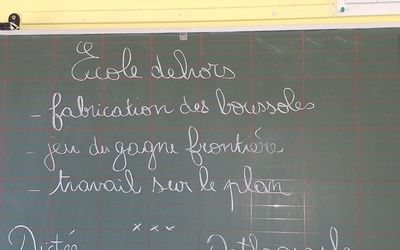 École dehors
- fabrication des boussoles
- jeu du gagne frontière
- travail sur le plan
x x x
Dictée Orthographe